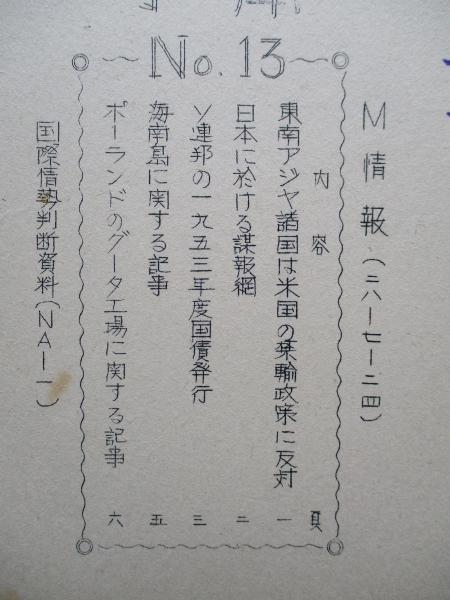 No. 13
M情報(二八—七—二四)
内容 頁
東南アジヤ諸国は米国の禁輸政策に反対 一
日本に於ける謀報網 二
ソ連邦の一九五三年度国債発行 三
海南島に関する記事 五
ポーランドのグータ工場に関する記事 六
国際情勢判断資料(NA—一)